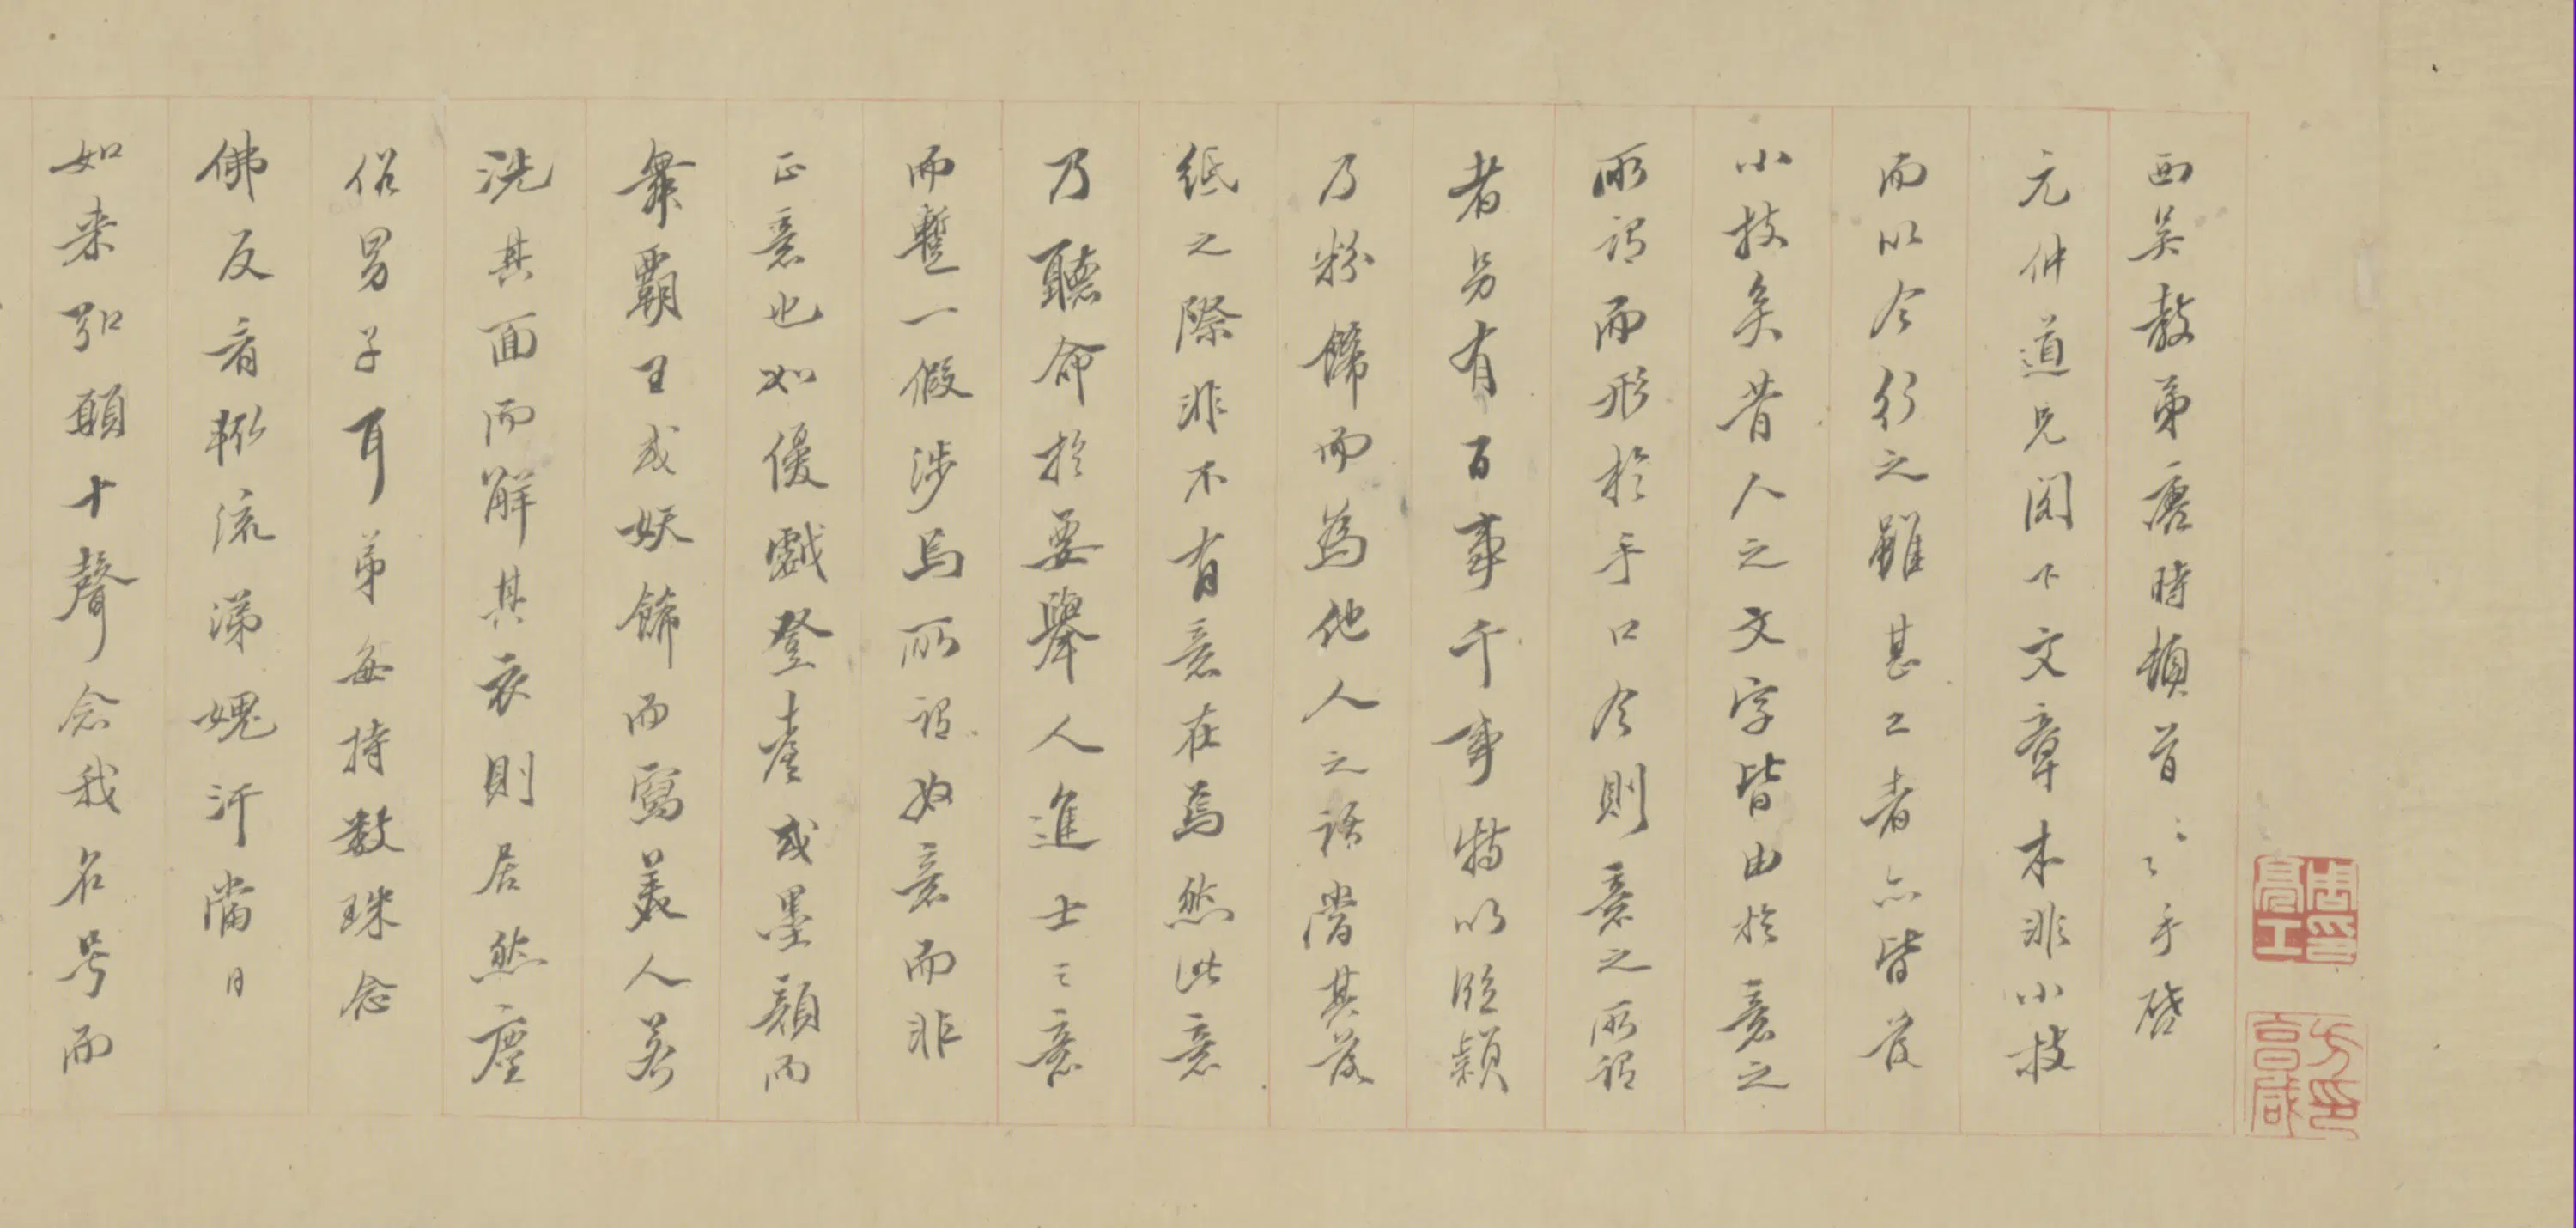 西吴教弟唐時頓首〻〻手啓
元仲道兄閣下文章本非小技
而以今行之雖甚工者亦皆茂
小技矣昔人之文字皆由於意之
所謂而形於手口今則意之所謂
者另有百事千事特以臨穎
乃粉餙而為他人之語當其落
紙之際非不有意在焉然此意
乃聽命於要舉人進士之意
而暫一假涉焉所謂如意而非
正意也如優戲登臺或墨顏而
舞霸王或妖餙而寫美人若
洗其面而解其衣則居然塵
俗男子耳弟每持數珠念
佛反看輒流涕媿汗當日
如来弘願十聲念我名号而
周印
方印